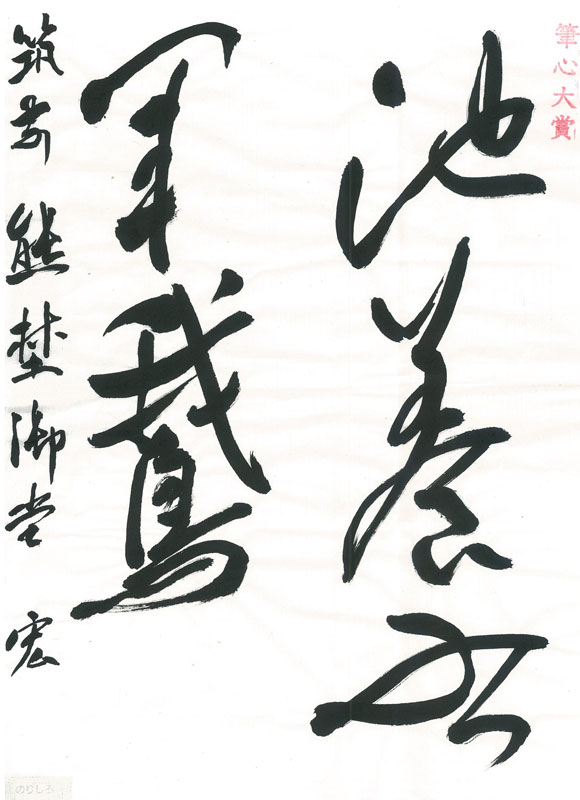 筆心大賞
池養右
軍鵝
筑前 熊埜御堂 宏
のりしろ